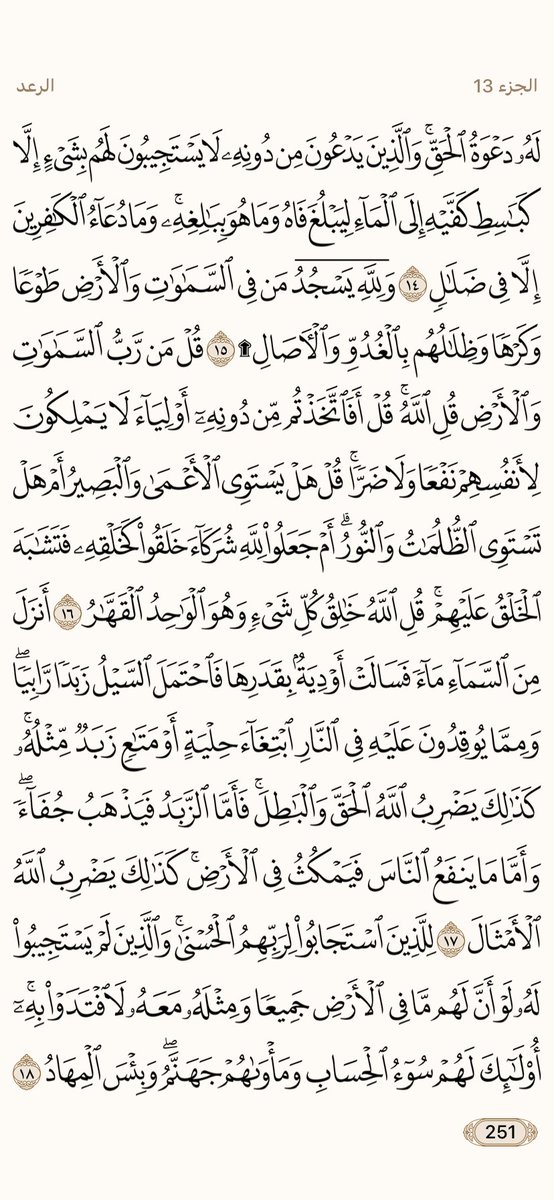 الجزء 13
الرعد
لَهُۥ دَعۡوَةُ ٱلۡحَقِّۚ وَٱلَّذِينَ يَدۡعُونَ مِن دُونِهِۦ لَا يَسۡتَجِيبُونَ لَهُم بِشَيۡءٍ إِلَّا
كَبَٰسِطِ كَفَّيۡهِ إِلَى ٱلۡمَآءِ لِيَبۡلُغَ فَاهُ وَمَا هُوَ بِبَٰلِغِهِۦۚ وَمَا دُعَآءُ ٱلۡكَٰفِرِينَ
إِلَّا فِي ضَلَٰلٖ ١٤ وَلِلَّهِۤ يَسۡجُدُۤ مَن فِي ٱلسَّمَٰوَٰتِ وَٱلۡأَرۡضِ طَوۡعٗا
وَكَرۡهٗا وَظِلَٰلُهُم بِٱلۡغُدُوِّ وَٱلۡأٓصَالِ۩ ١٥ قُلۡ مَن رَّبُّ ٱلسَّمَٰوَٰتِ
وَٱلۡأَرۡضِ قُلِ ٱللَّهُۚ قُلۡ أَفَٱتَّخَذۡتُم مِّن دُونِهِۦٓ أَوۡلِيَآءَ لَا يَمۡلِكُونَ
لِأَنفُسِهِمۡ نَفۡعٗا وَلَا ضَرّٗاۚ قُلۡ هَلۡ يَسۡتَوِي ٱلۡأَعۡمَىٰ وَٱلۡبَصِيرُ أَمۡ هَلۡ
تَسۡتَوِي ٱلظُّلُمَٰتُ وَٱلنُّورُۗ أَمۡ جَعَلُواْ لِلَّهِ شُرَكَآءَ خَلَقُواْ كَخَلۡقِهِۦ فَتَشَٰبَهَ
ٱلۡخَلۡقُ عَلَيۡهِمۡۚ قُلِ ٱللَّهُ خَٰلِقُ كُلِّ شَيۡءٖ وَهُوَ ٱلۡوَٰحِدُ ٱلۡقَهَّٰرُ ١٦ أَنزَلَ
مِنَ ٱلسَّمَآءِ مَآءٗ فَسَالَتۡ أَوۡدِيَةُۢ بِقَدَرِهَا فَٱحۡتَمَلَ ٱلسَّيۡلُ زَبَدٗا رَّابِيٗاۖ
وَمِمَّا يُوقِدُونَ عَلَيۡهِ فِي ٱلنَّارِ ٱبۡتِغَآءَ حِلۡيَةٍ أَوۡ مَتَٰعٖ زَبَدٞ مِّثۡلُهُۥۚ
كَذَٰلِكَ يَضۡرِبُ ٱللَّهُ ٱلۡحَقَّ وَٱلۡبَٰطِلَۚ فَأَمَّا ٱلزَّبَدُ فَيَذۡهَبُ جُفَآءٗۖ
وَأَمَّا مَا يَنفَعُ ٱلنَّاسَ فَيَمۡكُثُ فِي ٱلۡأَرۡضِۚ كَذَٰلِكَ يَضۡرِبُ ٱللَّهُ
ٱلۡأَمۡثَالَ ١٧ لِلَّذِينَ ٱسۡتَجَابُواْ لِرَبِّهِمُ ٱلۡحُسۡنَىٰۚ وَٱلَّذِينَ لَمۡ يَسۡتَجِيبُواْ
لَهُۥ لَوۡ أَنَّ لَهُم مَّا فِي ٱلۡأَرۡضِ جَمِيعٗا وَمِثۡلَهُۥ مَعَهُۥ لَٱفۡتَدَوۡاْ بِهِۦٓۚ
أُوْلَٰٓئِكَ لَهُمۡ سُوٓءُ ٱلۡحِسَابِ وَمَأۡوَىٰهُمۡ جَهَنَّمُۖ وَبِئۡسَ ٱلۡمِهَادُ ١٨
251